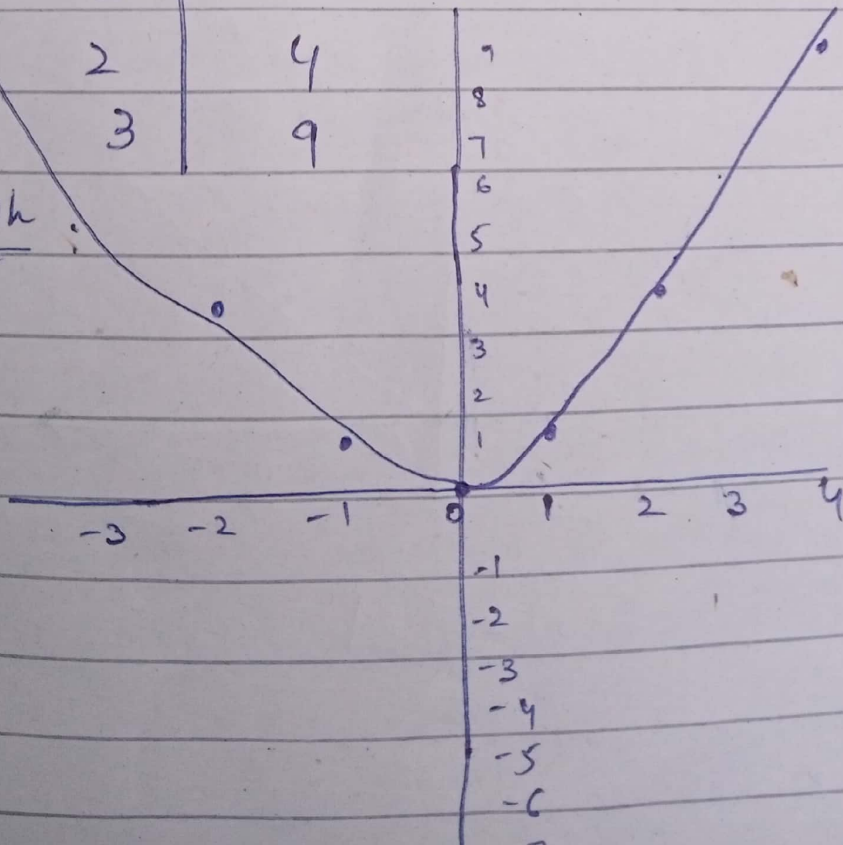 2 4
3 9
h
9
8
7
6
5
4
3
2
1
-3 -2 -1 0 1 2 3 4
-1
-2
-3
-4
-5
-6